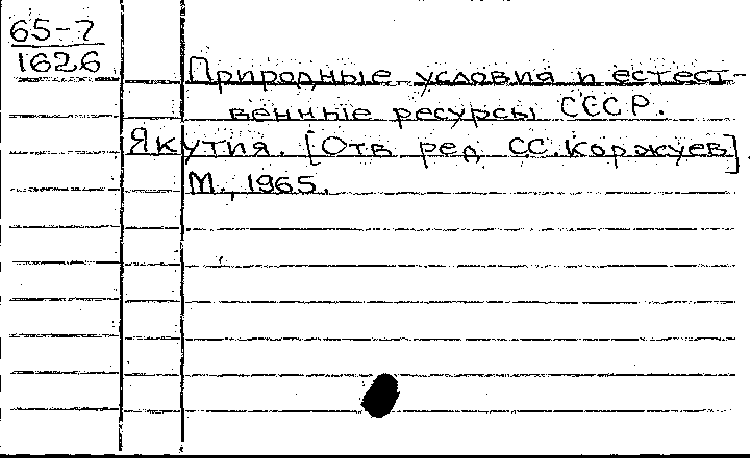 65-7
1626
Природные условия и естест-
венные ресурсы СССР.
Якутия. [Отв ред С.С.Коржуев].
М., 1965.